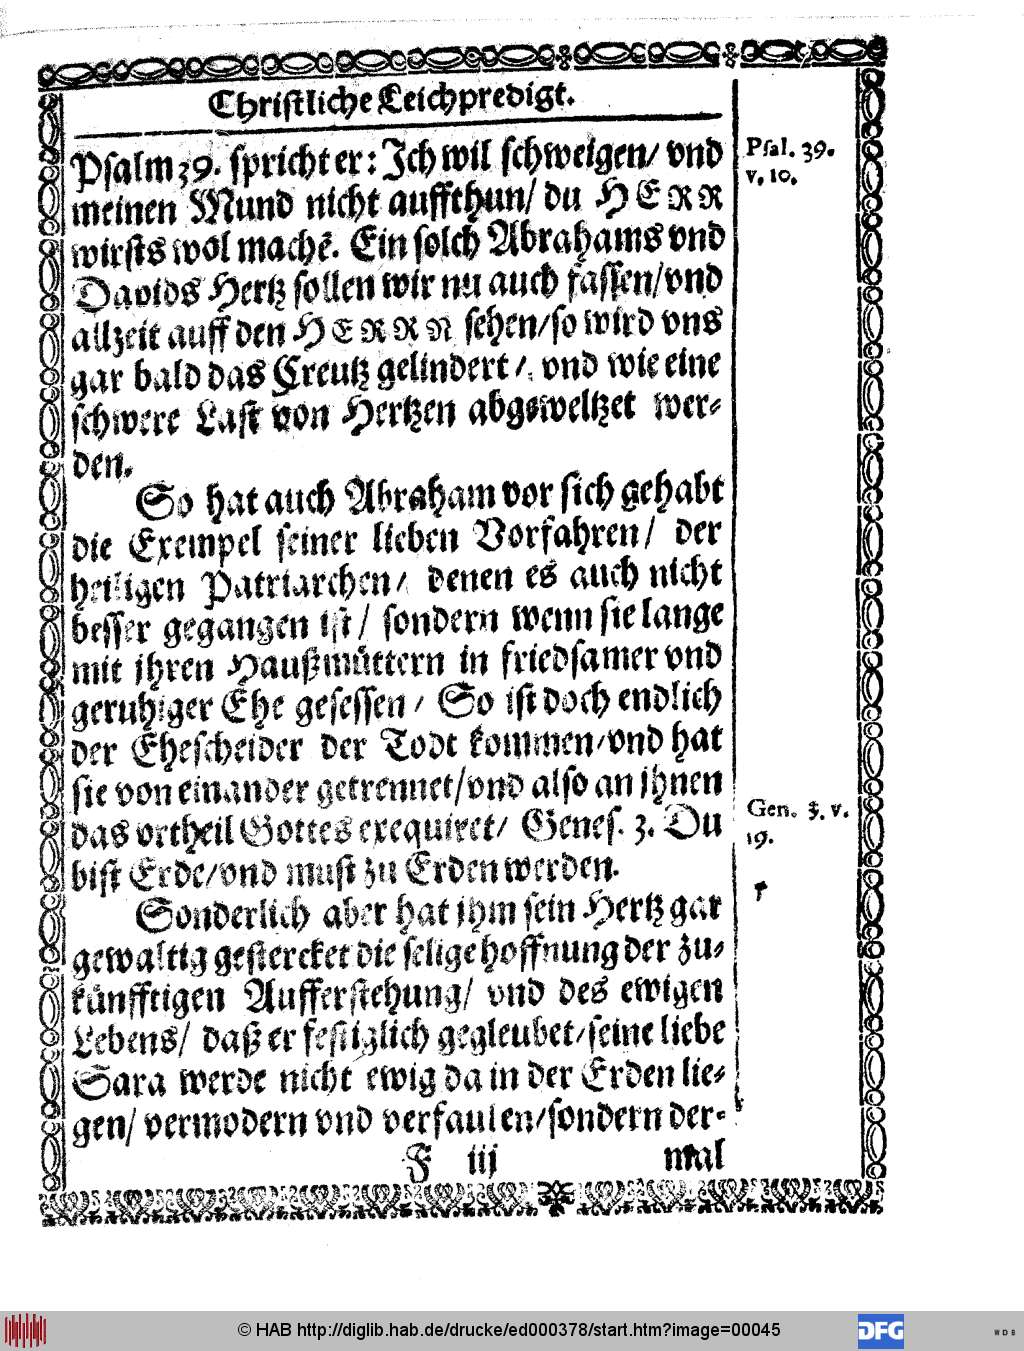 Christliche Leichpredigt.
Psalm 39. spricht er: Ich wil schweigen/ vnd
meinen Mund nicht auffthun/ du HERR
wirsts wol machẽ. Ein solch Abrahams vnd
Davids Hertz sollen wir nu auch fassen/vnd
allzeit auff den HERRN sehen/so wird vns
gar bald das Creutz gelindert/ vnd wie eine
schwere Last von Hertzen abgeweltzet wer-
den.
Psal. 39.
v. 10.
So hat auch Abraham vor sich gehabt
die Exempel seiner lieben Vorfahren/ der
heiligen Patriarchen/ denen es auch nicht
besser gegangen ist/ sondern wenn sie lange
mit jhren Haußmüttern in friedsamer vnd
geruhiger Ehe gesessen/ So ist doch endlich
der Ehescheider der Todt kommen/vnd hat
sie von einander getrennet/vnd also an jhnen
das vrtheil Gottes exequiret/ Genes. 3. Du
bist Erde/vnd must zu Erden werden.
Gen. 3. v.
19.
Sonderlich aber hat jhm sein Hertz gar
gewaltig gestercket die selige hoffnung der zu-
künfftigen Aufferstehung/ vnd des ewigen
Lebens/ daß er festiglich gegleubet/seine liebe
Sara werde nicht ewig da in der Erden lie-
gen/ vermodern vnd verfaulen/sondern der-
F iij mal
© HAB http://diglib.hab.de/drucke/ed000378/start.htm?image=00045
DFG
WDB